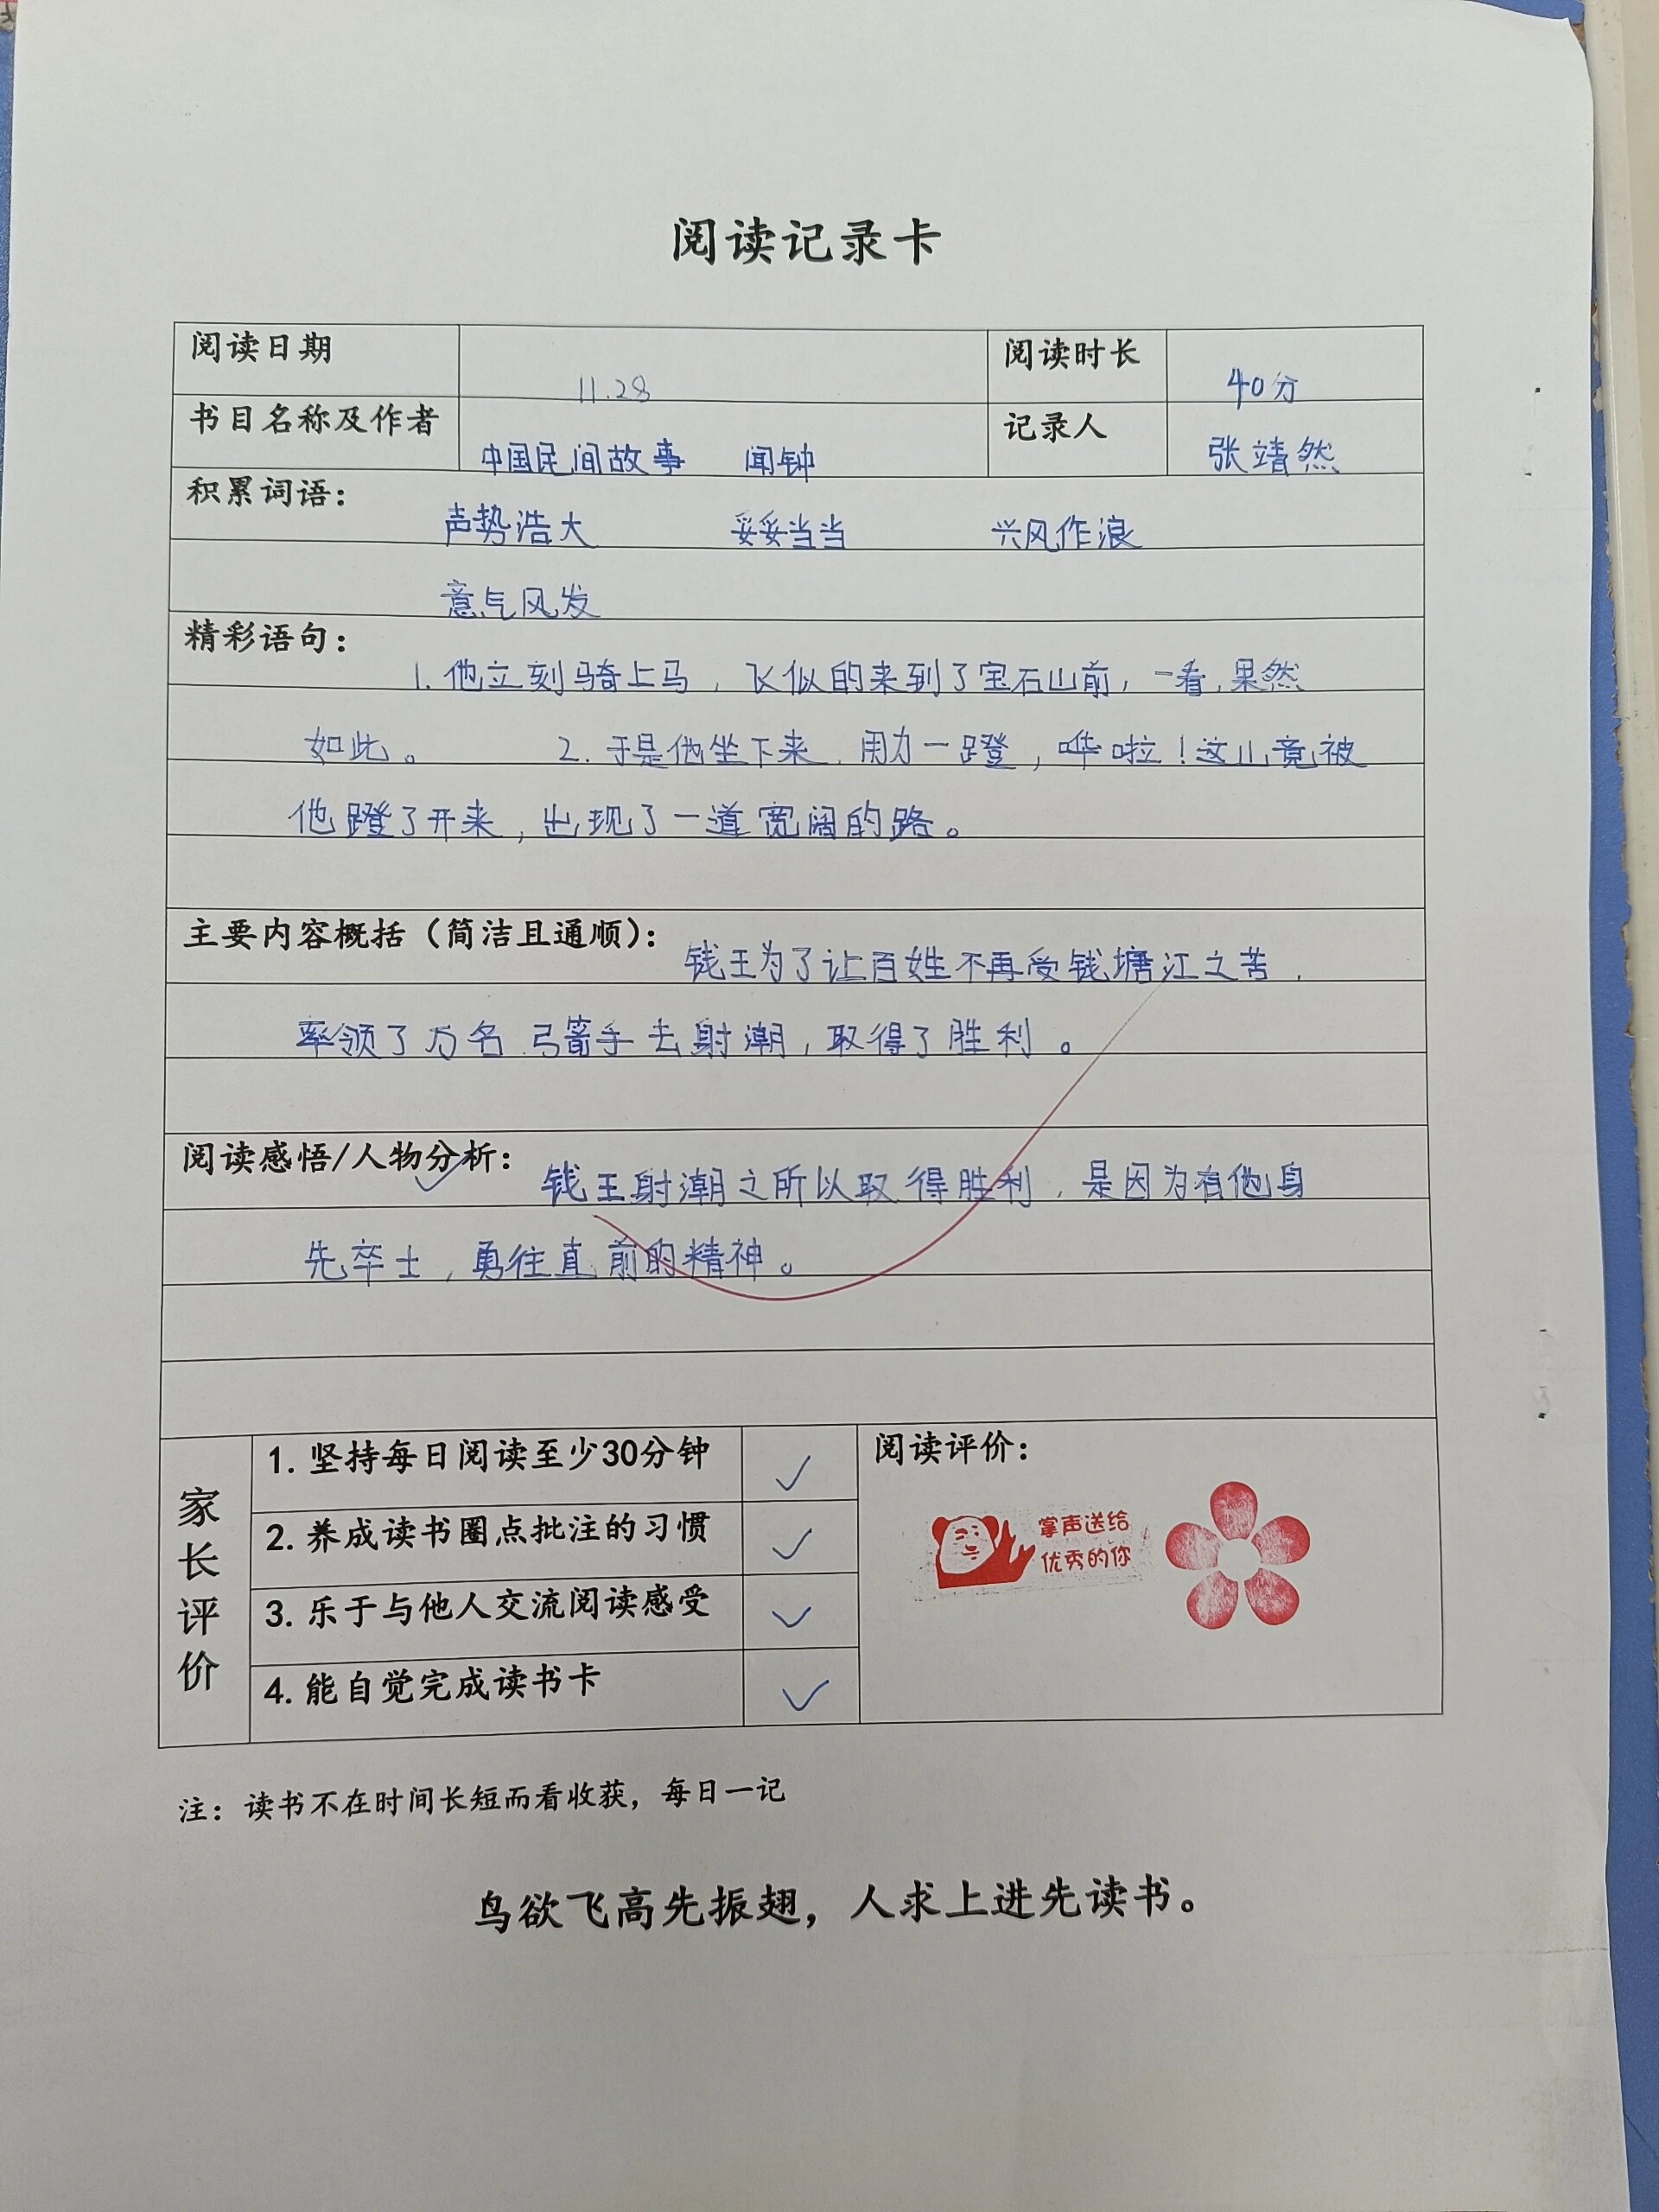 阅读记录卡
阅读日期 11.28 阅读时长 40分
书目名称及作者 中国民间故事 闻钟 记录人 张靖然
积累词语： 声势浩大 妥妥当当 兴风作浪
意气风发
精彩语句： 1. 他立刻骑上马，飞似的来到了宝石山前，一看，果然
如此。 2. 于是他坐下来，用力一蹬，哗啦！这山竟被
他蹬了开来，出现了一道宽阔的路。
主要内容概括（简洁且通顺）： 钱王为了让百姓不再受钱塘江之苦，
率领了万名弓箭手去射潮，取得了胜利。
阅读感悟/人物分析： 钱王射潮之所以取得胜利，是因为有他身
先卒士，勇往直前的精神。
家长评价
1. 坚持每日阅读至少30分钟 ✓
2. 养成读书圈点批注的习惯 ✓
3. 乐于与他人交流阅读感受 ✓
4. 能自觉完成读书卡 ✓
阅读评价：
掌声送给
优秀的你
注：读书不在时间长短而看收获，每日一记
鸟欲飞高先振翅，人求上进先读书。